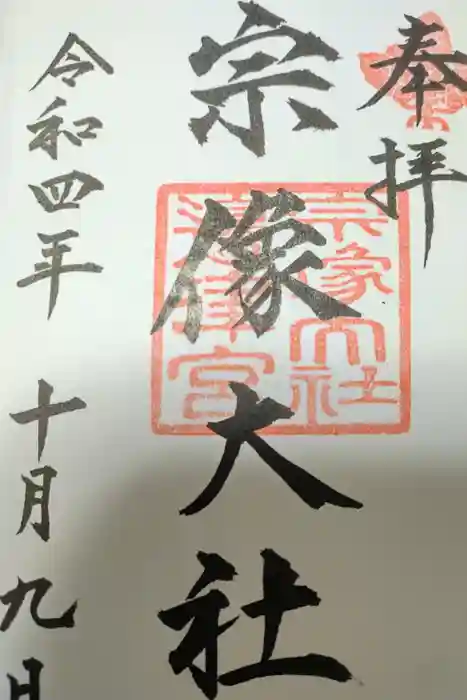 奉拝
宗像大社
宗像大社
邊津宮
令和四年 十月九日